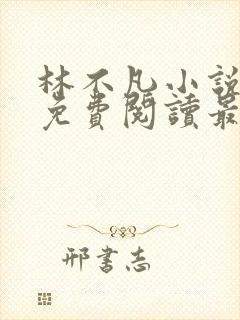 林不凡小說
免費閱讀最
邢書志